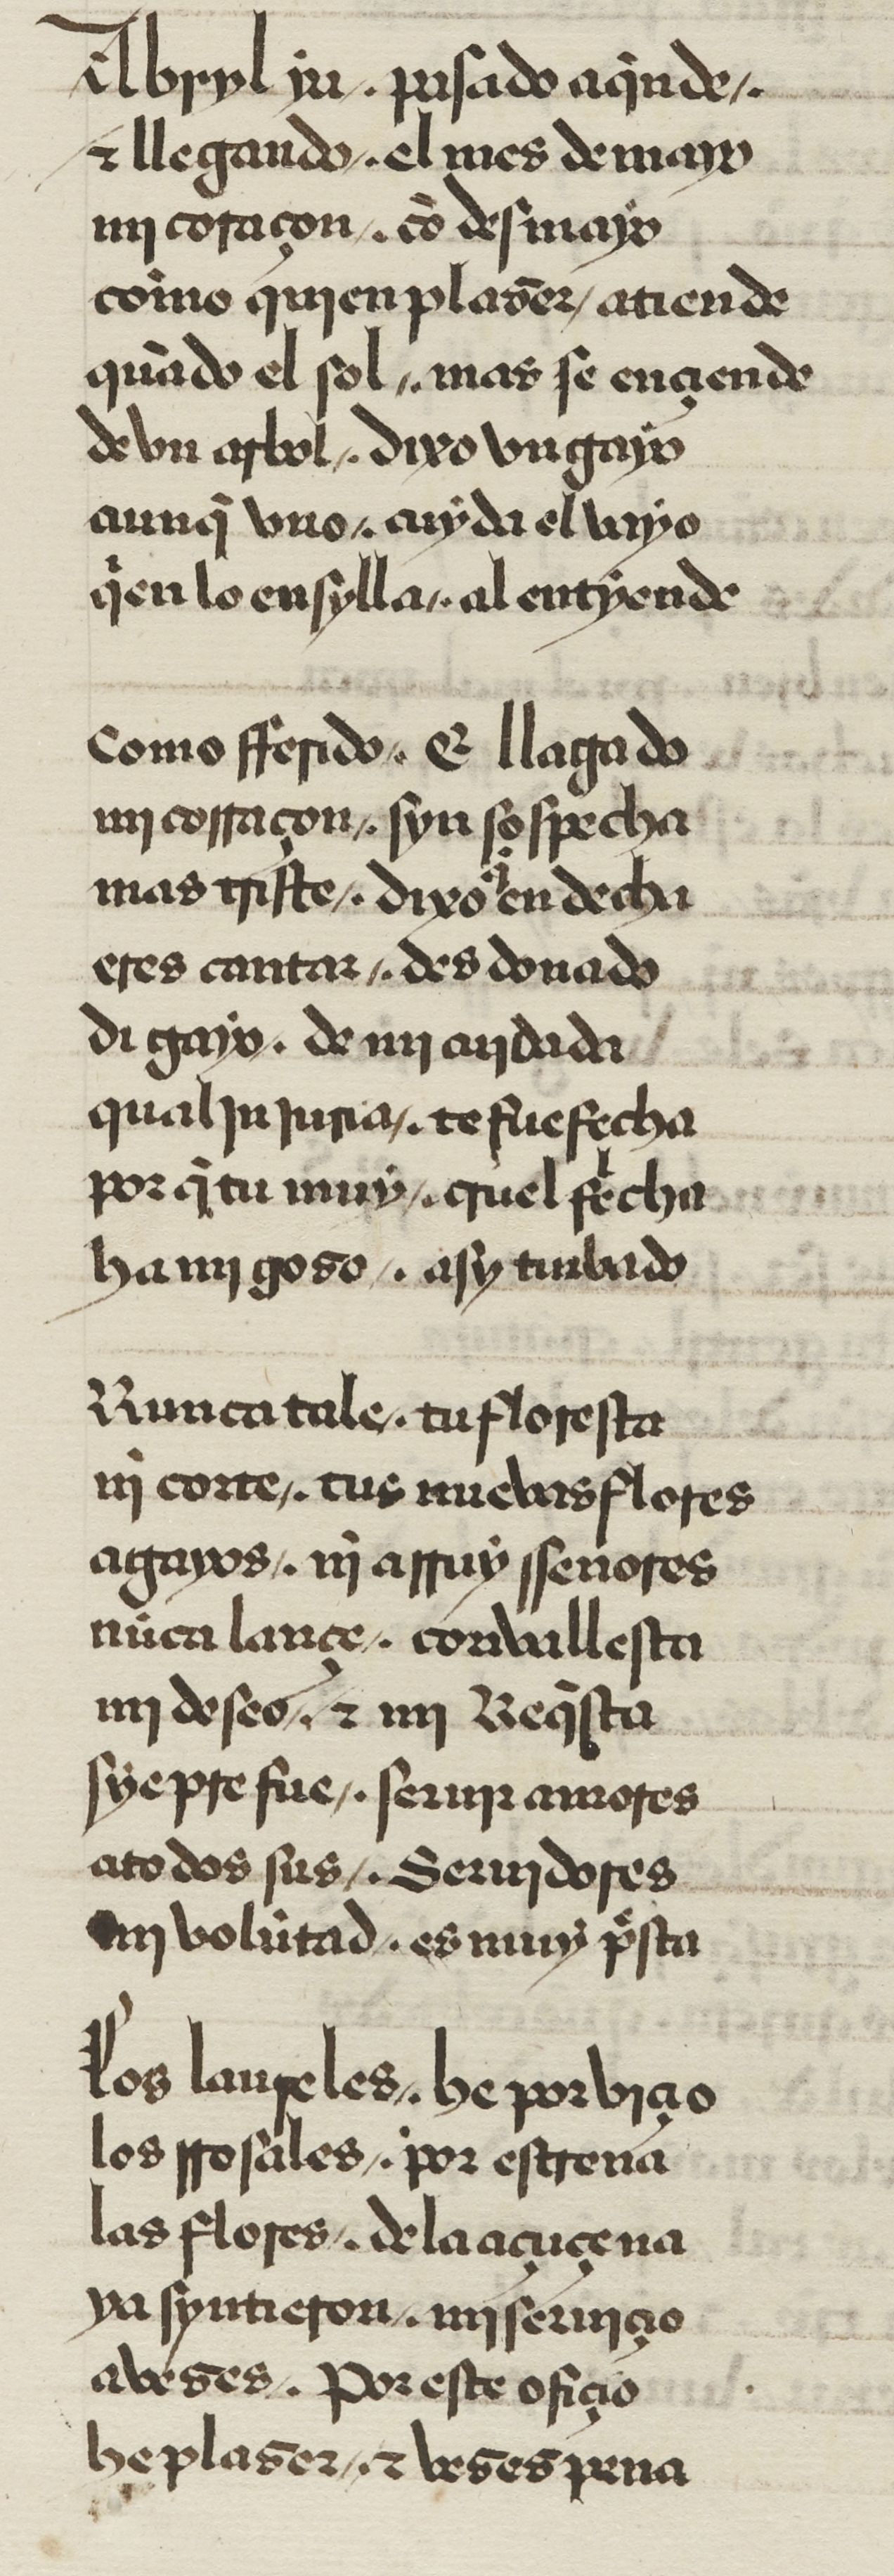 Abryl ya /. pasado aq̃nde /.
⁊ llegando /. el mes de mayo
mi coraçon /. cõ desmayo
como quien plazer / atiende
quãdo el sol /. mas se ençiende
de vn arbol /. dixo vn gayo
aunq̃ vno /. cuyda el vayo
q̃en lo ensylla /. al entyende
Como fferido /. Et llagado
mi corraçon /. syn sospecha
mas triste /. dixo q̃ endecha
eres cantar /. des donado
di gayo . de mi cuydada
qual injuria /. te fue fecha
por q̃ tu muy /. cruel frecha
ha mi gozo /. asy turbado
Nunca tale /. tu floresta
nj̃ corte /. tus nuevas flores
agayos /. nj̃ a rruy ssenores
nũca lançe /. con vallesta
mi deseo /. ⁊ mi Req̃sta
syẽpre fue /. seruir amores
atodos sus /. Seruidores
mi volũtad . es muy p̃sta
Los laureles /. he por viçio
los rrosales /. por estrena
las flores /. de la açuçena
ya syntieron /. mi seruiçio
avezes /. Por este ofiçio
he plazer /. ⁊ vezes pena